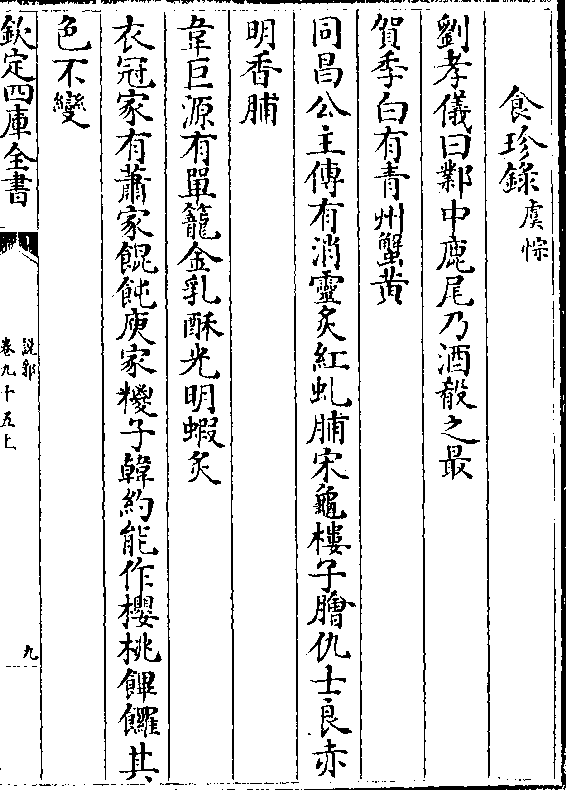 食珍錄虞悰
劉孝儀曰鄴中鹿尾乃酒殽之最
賀季白有青州蟹黃
同昌公主傳有消靈炙紅虬脯宋龜樓子膾仇士良赤
明香脯
韋巨源有單籠金乳酥光明蝦炙
衣冠家有蕭家餛飩庾家糉子韓約能作櫻桃饆饠其
色不變
欽定四庫全書
說郛
卷九十五上
九